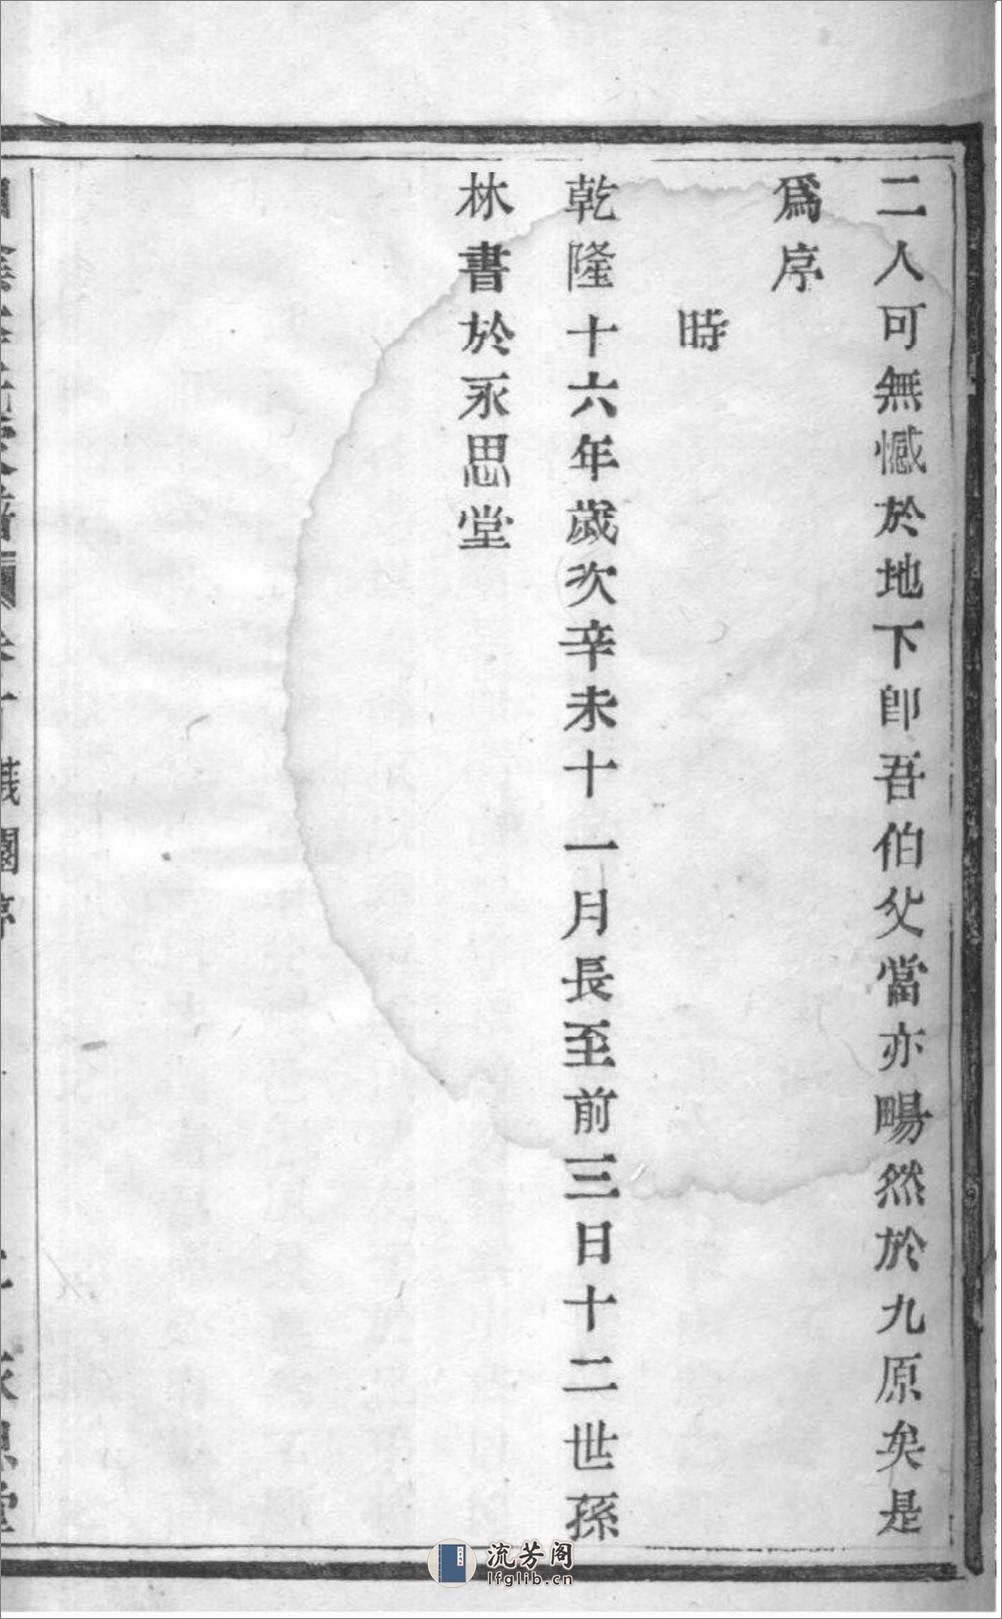 二人可無憾於地下卽吾伯父當亦暢然於九原矣是
爲序
時
乾隆十六年歲次辛未十一月長至前三日十二世孫
林書於永思堂
流芳阁
lfglib.cn